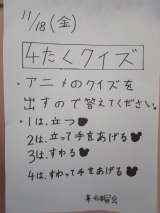 11/18(金)
4たくクイズ
・アニメのクイズを
出すので答えてください。
・1は、立つ
2は、立って手をあげる
3は、すわる
4は、すわって手をあげる